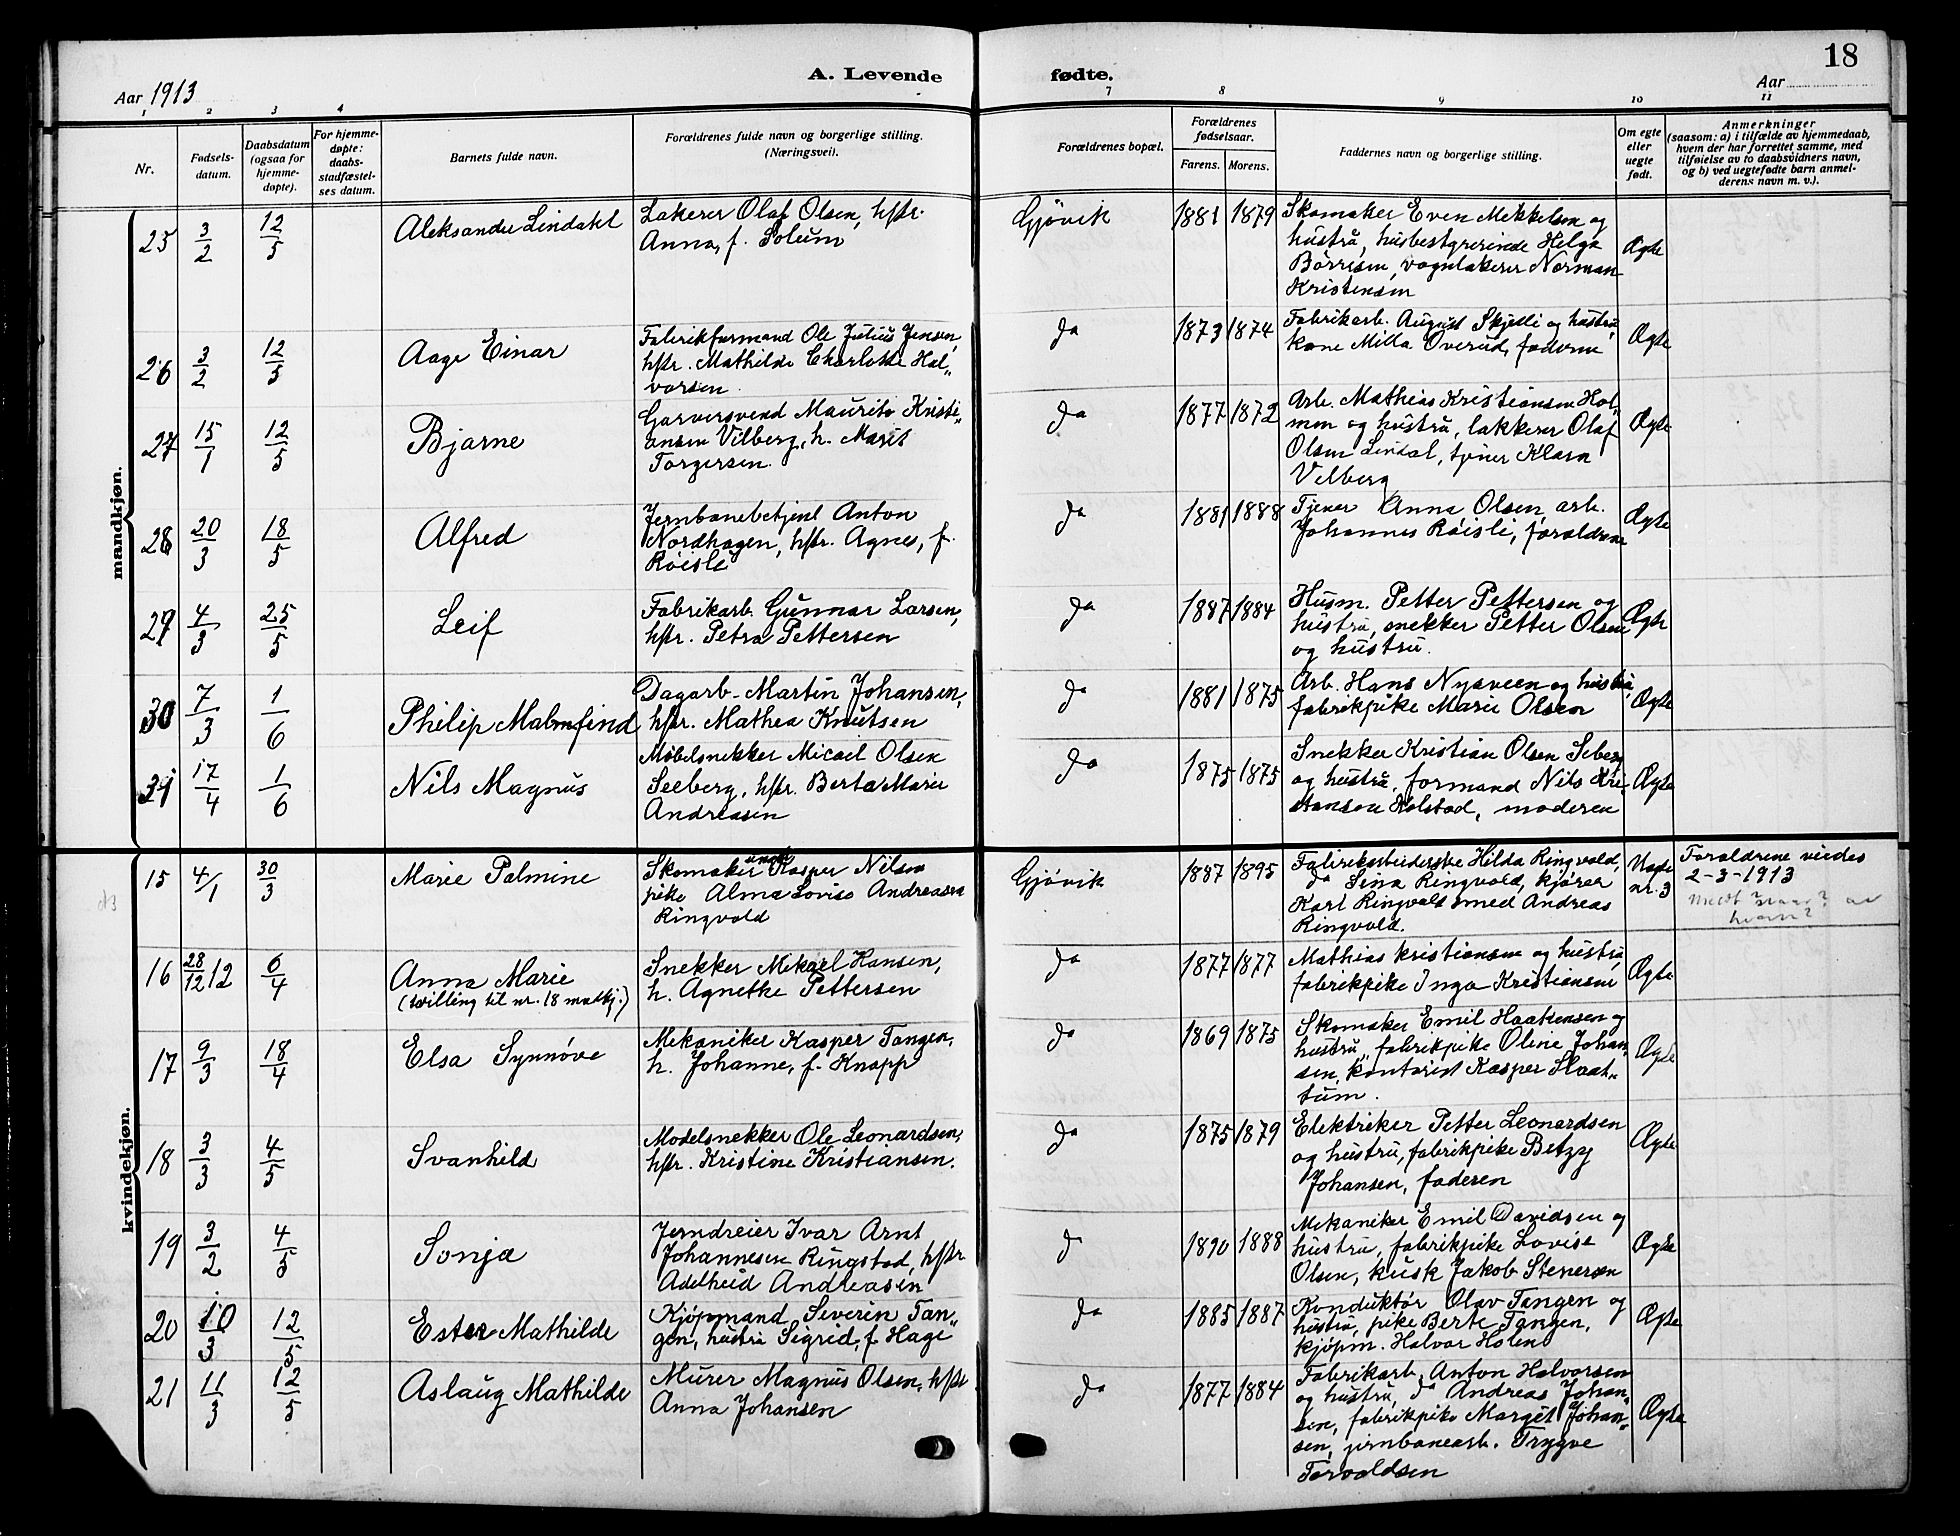 18
A. Levende fødte.
Aar 1913
Aar
1 2 3 4 7 8 9 10 11
Nr.
Fødsels-
datum.
Daabsdatum
(ogsaa for
hjemme-
døpte).
For hjemme-
døpte:
daabs-
stadfæstel-
ses datum.
Barnets fulde navn.
Forældrenes fulde navn og borgerlige stilling.
(Næringsvei).
Forældrenes bopæl.
Forældrenes
fødselsaar.
Farens. Morens.
Faddernes navn og borgerlige stilling.
Om egte
eller
uegte
født.
Anmerkninger
(saasom: a) i tilfælde av hjemmedaab,
hvem der har forrettet samme, med
tilføielse av to daabsvidners navn,
og b) ved uegtefødte barn anmel-
derens navn m. v.).
mandkjøn.
25 3/2 12/5 Aleksander Lindahl
Lakerer Olaf Olsen, hstr.
Anna, f. Solum
Gjøvik 1881 1879
Skomaker Even Mekkelsen og
hustru, husbestyrerinde Helga
Børresen, vognlakerer Norman
Kristensen
Ægte
26 3/2 12/5 Aage Einar
Fabrikformand Ole Julius Jensen,
hstr. Mathilde Charlotte Hal„
vorsen
Do 1873 1874
Fabrikarb. August Skjelli og hustru,
kone Milla Øverud, faderne
Ægte
27 15/1 12/5 Bjarne
Garversvend Maurits Kristi„
ansen Vilberg, h. Marit
Torgersen.
Do 1877 1872
Arb. Mathias Kristiansen Hol„
men og hustru, lakkerer Olaf
Olsen Lindal, tjener Klara
Velberg
Ægte
28 20/3 18/5 Alfred
Jernbanebetjent Anton
Nordhagen, hstr. Agnes, f.
Røisli
Do 1881 1888
Tjener Anna Olsen arb.
Johannes Røisli, forældrene
Ægte
29 4/3 25/5 Leif
Fabrikarb. Gunnar Larsen,
hstr. Petra Pettersen
Do 1887 1884
Husm. Petter Pettersen og
hustru, snekker Petter Olsen
og hustru.
Ægte
30 7/3 1/6 Philip Malmfind
Dagarb. Martin Johansen,
hstr. Mathea Knutsen
Do 1881 1875
Arb. Hans Nysveen og hustru,
fabrikpike Marie Olsen
Ægte
31 17/4 1/6 Nils Magnus
Møbelsnekker Micael Olsen
Seeberg, hstr. Berta Marie
Andreasen
Do 1875 1875
Snekker Kristian Olsen Seberg
og hustru, formand Nils Kri„
stansen Kolstad, moderen
Ægte
kvindekjøn.
15 4/1 30/3 Marie Palmine
Skomaker Kasper Nilsen
pike Alma Lovise Andreasen
Ringvold
Gjøvik 1887 1895
Fabrikarbeiderske Hilda Ringvold,
do Lina Ringvold, kjører
Karl Ringvold smed Andreas
Ringvold.
Uægte
nr. 3
Forældrene viedes
2-3-1913
16 28/12 12 6/4 Anna Marie
(tvilling til nr. 18 matkj.)
Snekker Mekael Hansen,
h. Agnethe Pettersen
Do 1877 1877
Mathias Kristiansen og hustru
fabrikpike Inga Kristiansen
Ægte
17 9/3 18/4 Elsa Synnøve
Mekaniker Kasper Tangen,
h. Johanne, f. Knapp
Do 1869 1875
Skomaker Emil Haatensen og
hustru, fabrikpike Oline Johan„
sen, kontorist Kasper Haat„
tum.
Ægte
18 3/3 4/5 Svanhild
Modelsnekker Ole Leonardsen,
hstr. Kristine Kristiansen.
Do 1875 1879
Elektriker Petter Leonardsen
og hustru, fabrikpike Betzy
Johansen, faderen
Ægte
19 3/2 4/5 Sonja
Jerndreier Ivar Arnt
Johannesen Ringstad, hstr
Adelheid Andreasen
Do 1890 1888
Mekaniker Emil Davidsen og
hustru, fabrikpike Lovise
Olsen, kusk Jakob Stenersen
Ægte
20 10/3 12/5 Ester Mathilde
Kjøpmand Severin Tan„
gen, hustru Sigrid, f. Hage
Do 1885 1887
Konduktør Olav Tangen og
hustru, pike Berte Tangen,
kjøpm. Halvor Holen
Ægte
21 11/3 12/5 Aslaug Mathilde
Murer Magnus Olsen, hstr
Anna Johansen
Do 1877 1884
Fabrikarb. Anton Halvorsen
og hustru, do Andreas Johan„
sen, fabrikpike Margit Johan„
sen, jernbanearb. Trygve
Torvaldsen
Ægte